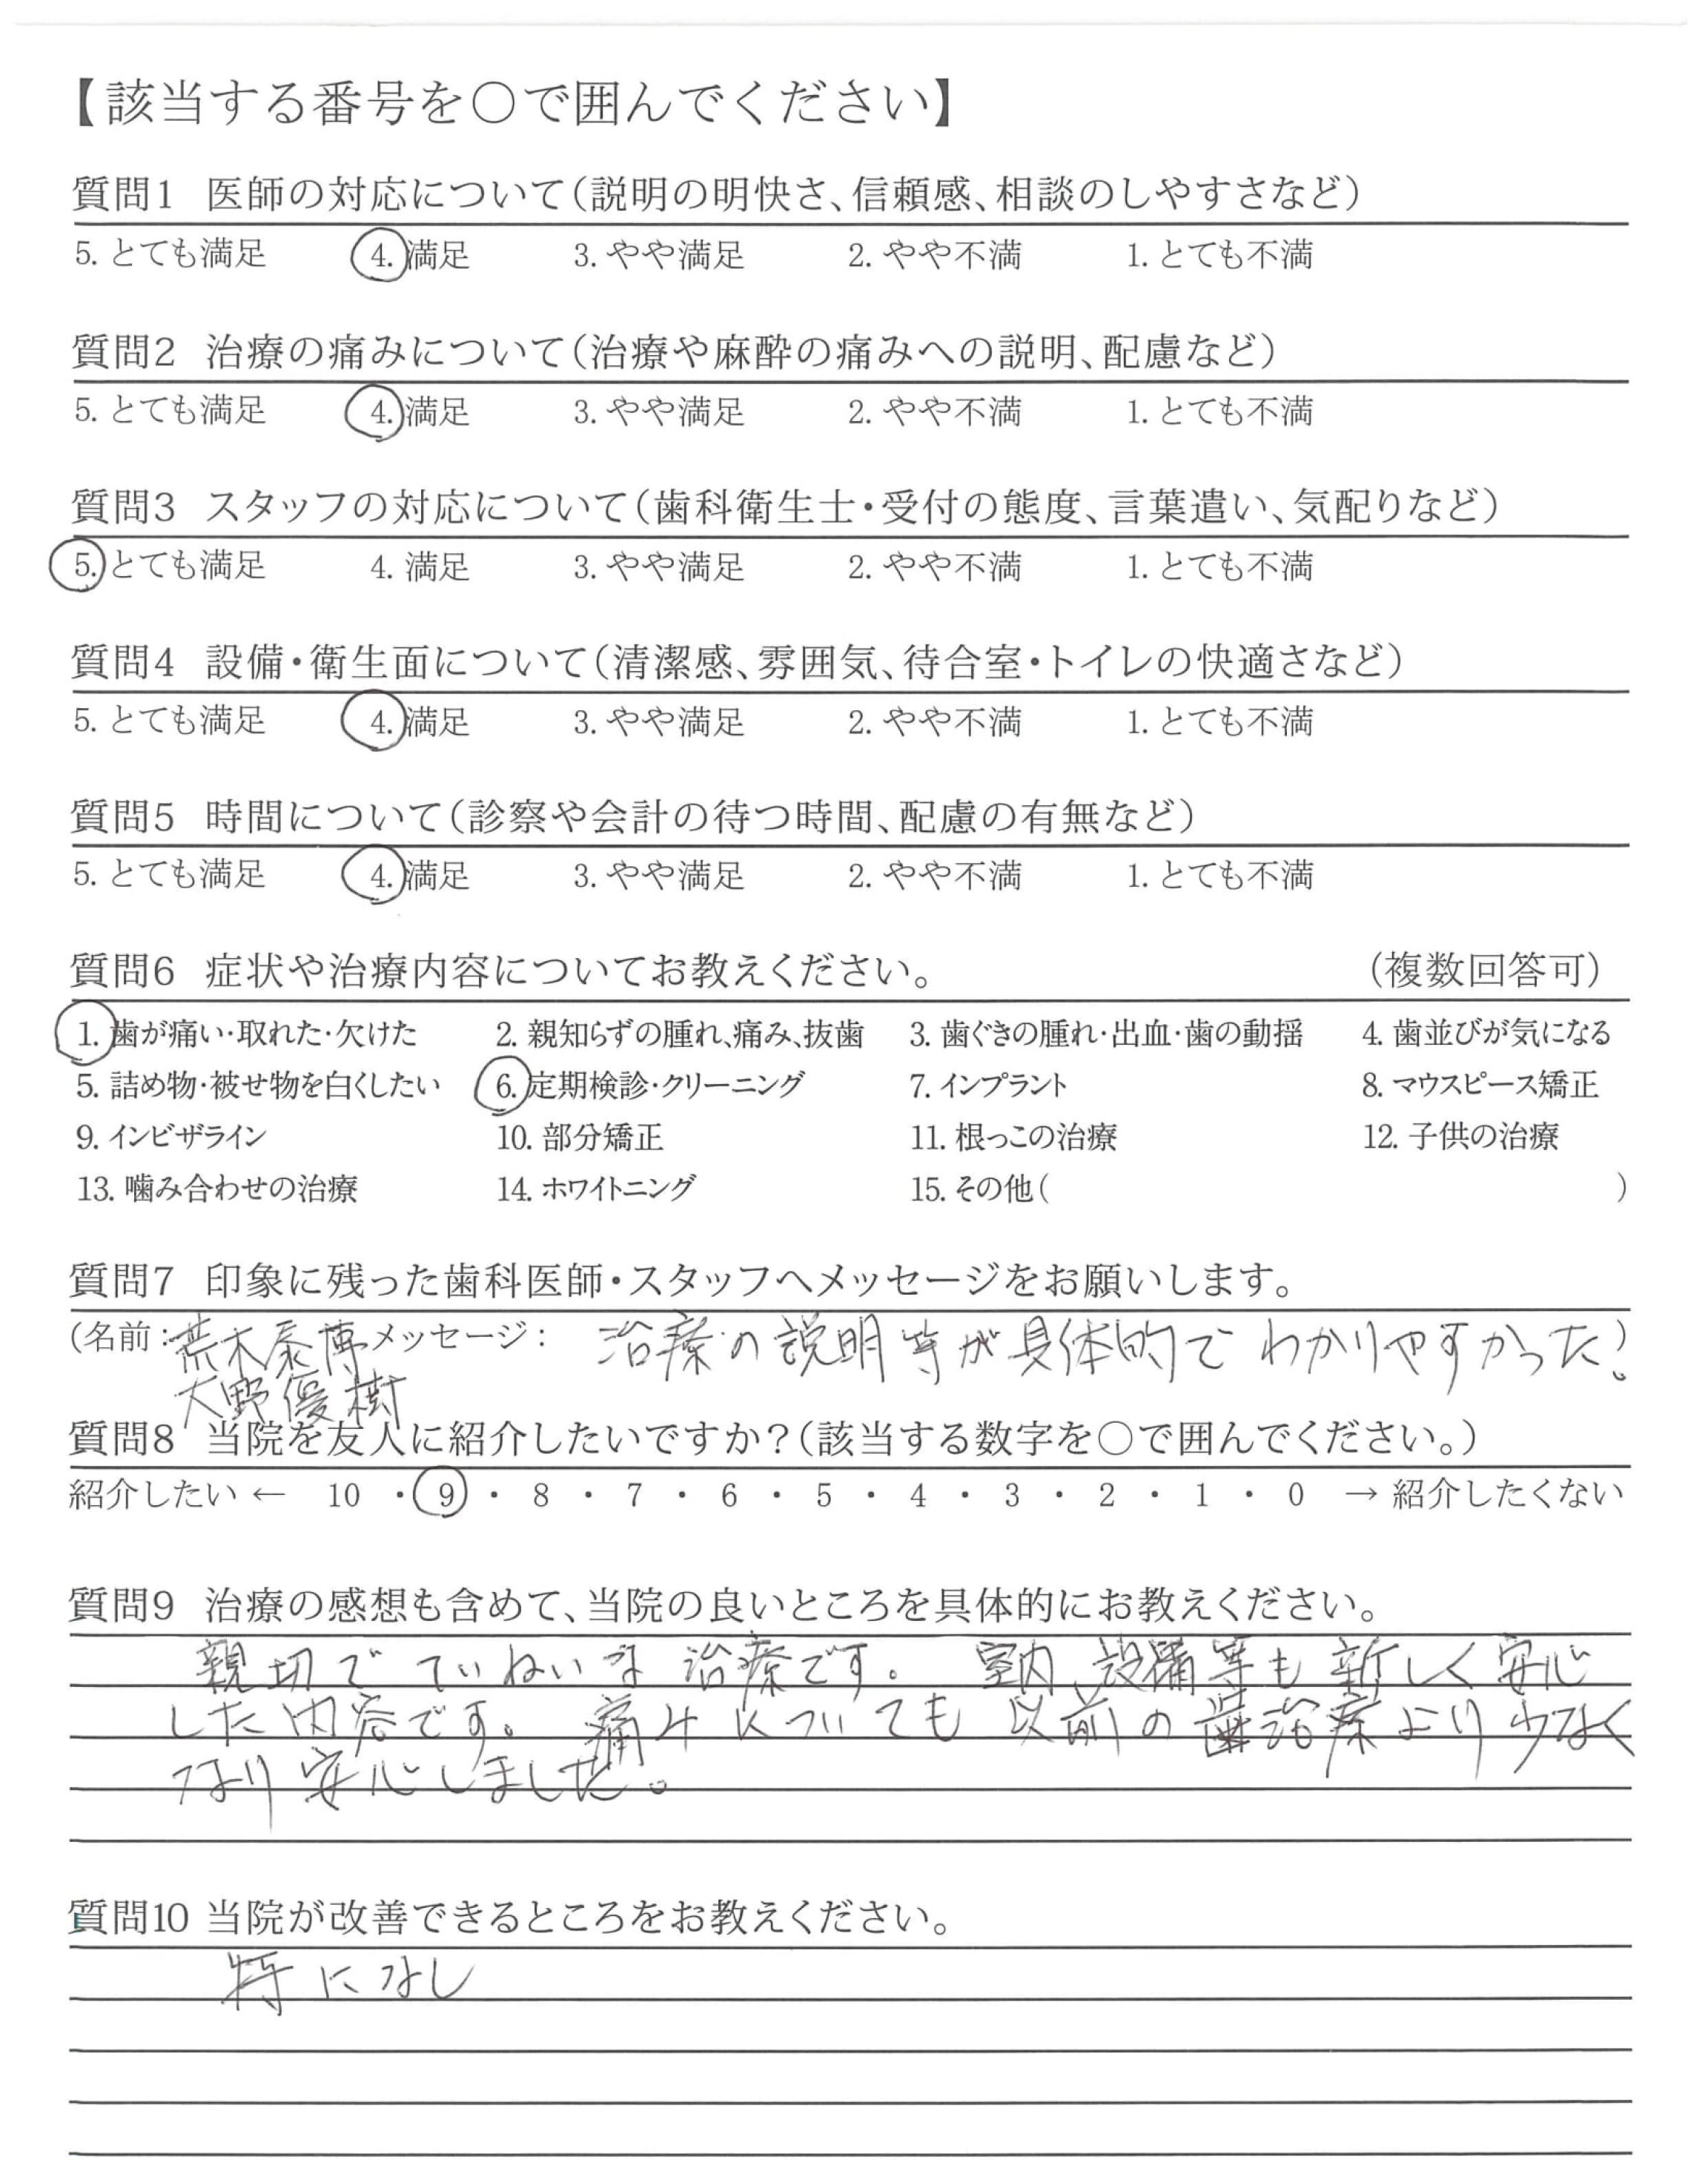 【該当する番号を○で囲んでください】
質問1 医師の対応について(説明の明快さ、信頼感、相談のしやすさなど)
5. とても満足 4. 満足 3. やや満足 2. やや不満 1. とても不満
質問2 治療の痛みについて(治療や麻酔の痛みへの説明、配慮など)
5. とても満足 4. 満足 3. やや満足 2. やや不満 1. とても不満
質問3 スタッフの対応について(歯科衛生士・受付の態度、言葉遣い、気配りなど)
5. とても満足 4. 満足 3. やや満足 2. やや不満 1. とても不満
質問4 設備・衛生面について(清潔感、雰囲気、待合室・トイレの快適さなど)
5. とても満足 4. 満足 3. やや満足 2. やや不満 1. とても不満
質問5 時間について(診察や会計の待つ時間、配慮の有無など)
5. とても満足 4. 満足 3. やや満足 2. やや不満 1. とても不満
質問6 症状や治療内容についてお教えください。 (複数回答可)
1. 歯が痛い・取れた・欠けた 2. 親知らずの腫れ、痛み、抜歯 3. 歯ぐきの腫れ・出血・歯の動揺 4. 歯並びが気になる
5. 詰め物・被せ物を白くしたい 6. 定期検診・クリーニング 7. インプラント 8. マウスピース矯正
9. インビザライン 10. 部分矯正 11. 根っこの治療 12. 子供の治療
13. 噛み合わせの治療 14. ホワイトニング 15. その他( )
質問7 印象に残った歯科医師・スタッフへメッセージをお願いします。
(名前:荒木泰博 メッセージ: 治療の説明等が具体的でわかりやすかった。)
大野優樹
質問8 当院を友人に紹介したいですか?(該当する数字を○で囲んでください。)
紹介したい ← 10 ・ 9 ・ 8 ・ 7 ・ 6 ・ 5 ・ 4 ・ 3 ・ 2 ・ 1 ・ 0 → 紹介したくない
質問9 治療の感想も含めて、当院の良いところを具体的にお教えください。
親切でていねいな治療です。室内、設備等も新しく安心
した内容です。痛みについても以前の歯治療より少なく
なり安心しました。
質問10 当院が改善できるところをお教えください。
特になし